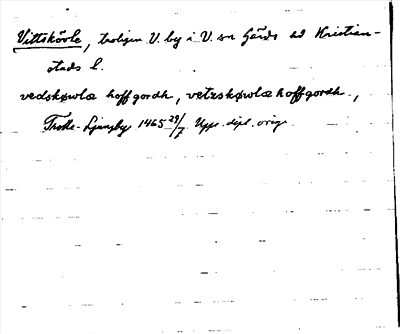 Vittskövle, troligen V. by i V. sn Gärds hd Kristian-
stads l.
vedskøwlæ hoffgordh, vetzskøwlæ hoffgordh.,
Trolle-Ljungby 1465 29/7. Upps. dipl. orig.